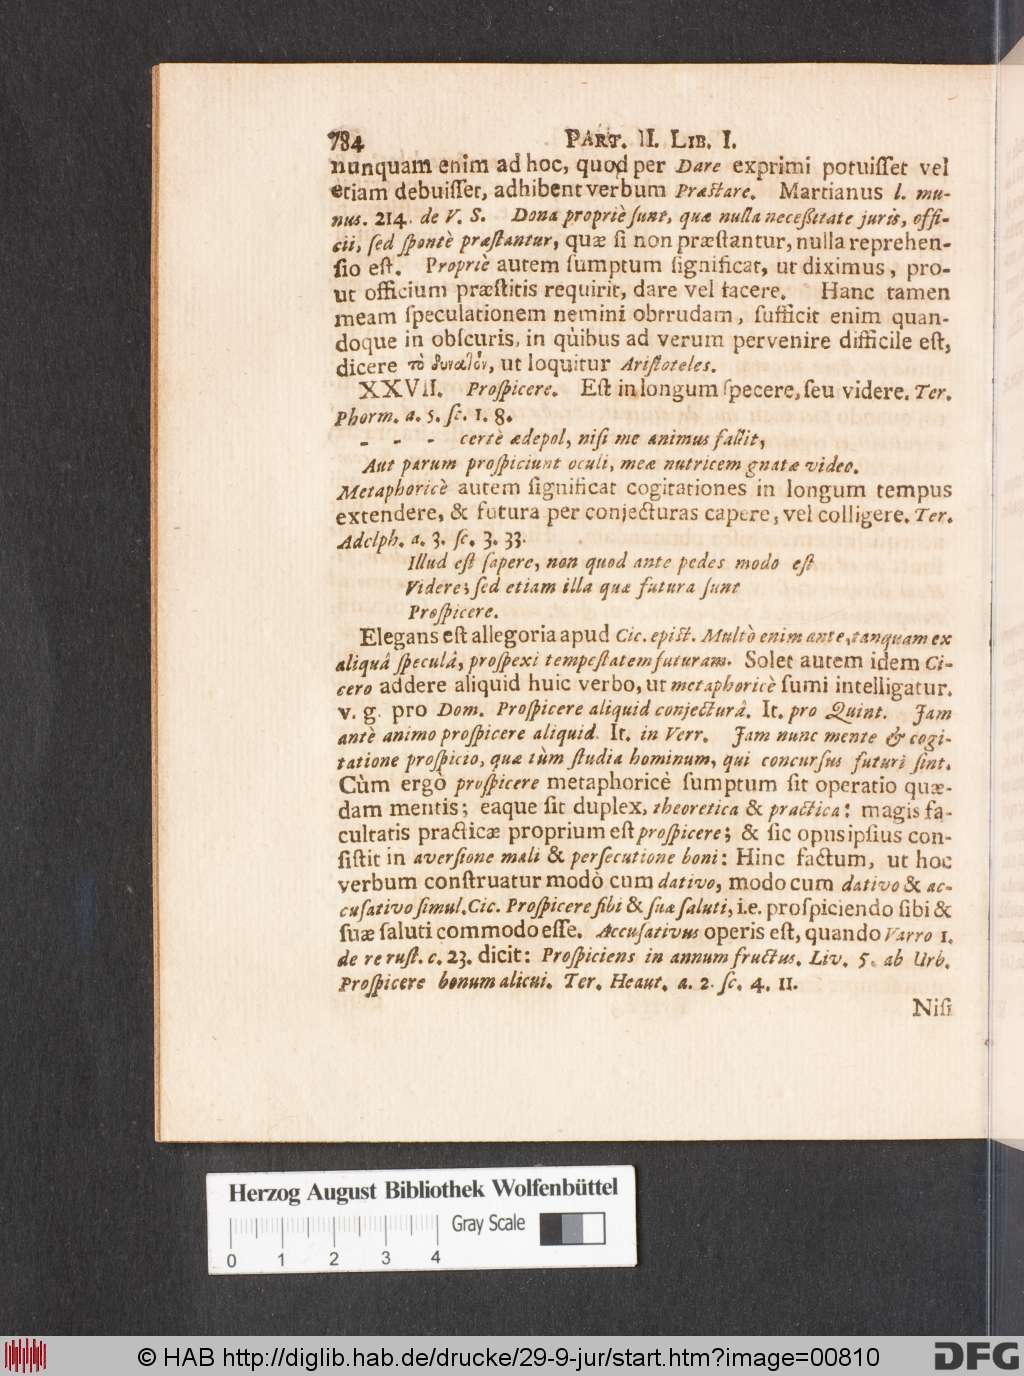 784 PART. II. LIB. I.
nunquam enim ad hoc, quod per Dare exprimi potuiſſet vel
etiam debuiſſet, adhibent verbum Præſtare. Martianus l. mu-
nus. 214. de V. S. Dona propriè ſunt, quæ nulla neceßitate juris, offi-
cii, ſed ſpontè præſtantur, quæ ſi non præſtantur, nulla reprehen-
ſio eſt. Propriè autem ſumptum ſignificat, ut diximus, pro-
ut officium præſtitis requirit, dare vel facere. Hanc tamen
meam ſpeculationem nemini obtrudam, ſufficit enim quan-
doque in obſcuris, in quibus ad verum pervenire difficile eſt,
dicere τὸ δυναλὸν, ut loquitur Ariſtoteles.
XXVII. Proſpicere. Eſt in longum ſpecere, ſeu videre. Ter.
Phorm. a. 5. ſc. 1. 8.
- - - certè ædepol, niſi me animus fallit,
Aut parum proſpiciunt oculi, meæ nutricem gnatæ video.
Metaphoricè autem ſignificat cogitationes in longum tempus
extendere, & futura per conjecturas capere, vel colligere. Ter.
Adelph. a. 3. ſc. 3. 33.
Illud eſt ſapere, non quod ante pedes modo eſt
Videre; ſed etiam illa quæ futura ſunt
Proſpicere.
Elegans eſt allegoria apud Cic. epiſt. Multò enim ante, tanquam ex
aliquâ ſpeculâ, proſpexi tempeſtatem futuram. Solet autem idem Ci-
cero addere aliquid huic verbo, ut metaphoricè ſumi intelligatur.
v. g. pro Dom. Proſpicere aliquid conjecturâ. It. pro Quint. Jam
antè animo proſpicere aliquid. It. in Verr. Jam nunc mente & cogi-
tatione proſpicio, quæ tùm ſtudia hominum, qui concurſus futuri ſint.
Cùm ergò proſpicere metaphoricè ſumptum ſit operatio quæ-
dam mentis; eaque ſit duplex, theoretica & practica: magis fa-
cultatis practicæ proprium eſt proſpicere; & ſic opus ipſius con-
ſiſtit in averſione mali & perſecutione boni: Hinc factum, ut hoc
verbum conſtruatur modò cum dativo, modo cum dativo & ac-
cuſativo ſimul. Cic. Proſpicere ſibi & ſuæ ſaluti, i.e. proſpiciendo ſibi &
ſuæ ſaluti commodo eſſe. Accuſativus operis eſt, quando Varro 1.
de re ruſt. c. 23. dicit: Proſpiciens in annum fructus. Liv. 5. ab Urb.
Proſpicere bonum alicui. Ter. Heaut. a. 2. ſc. 4. 11.
Niſi
Herzog August Bibliothek Wolfenbüttel
Gray Scale
0 1 2 3 4
© HAB http://diglib.hab.de/drucke/29-9-jur/start.htm?image=00810
DFG